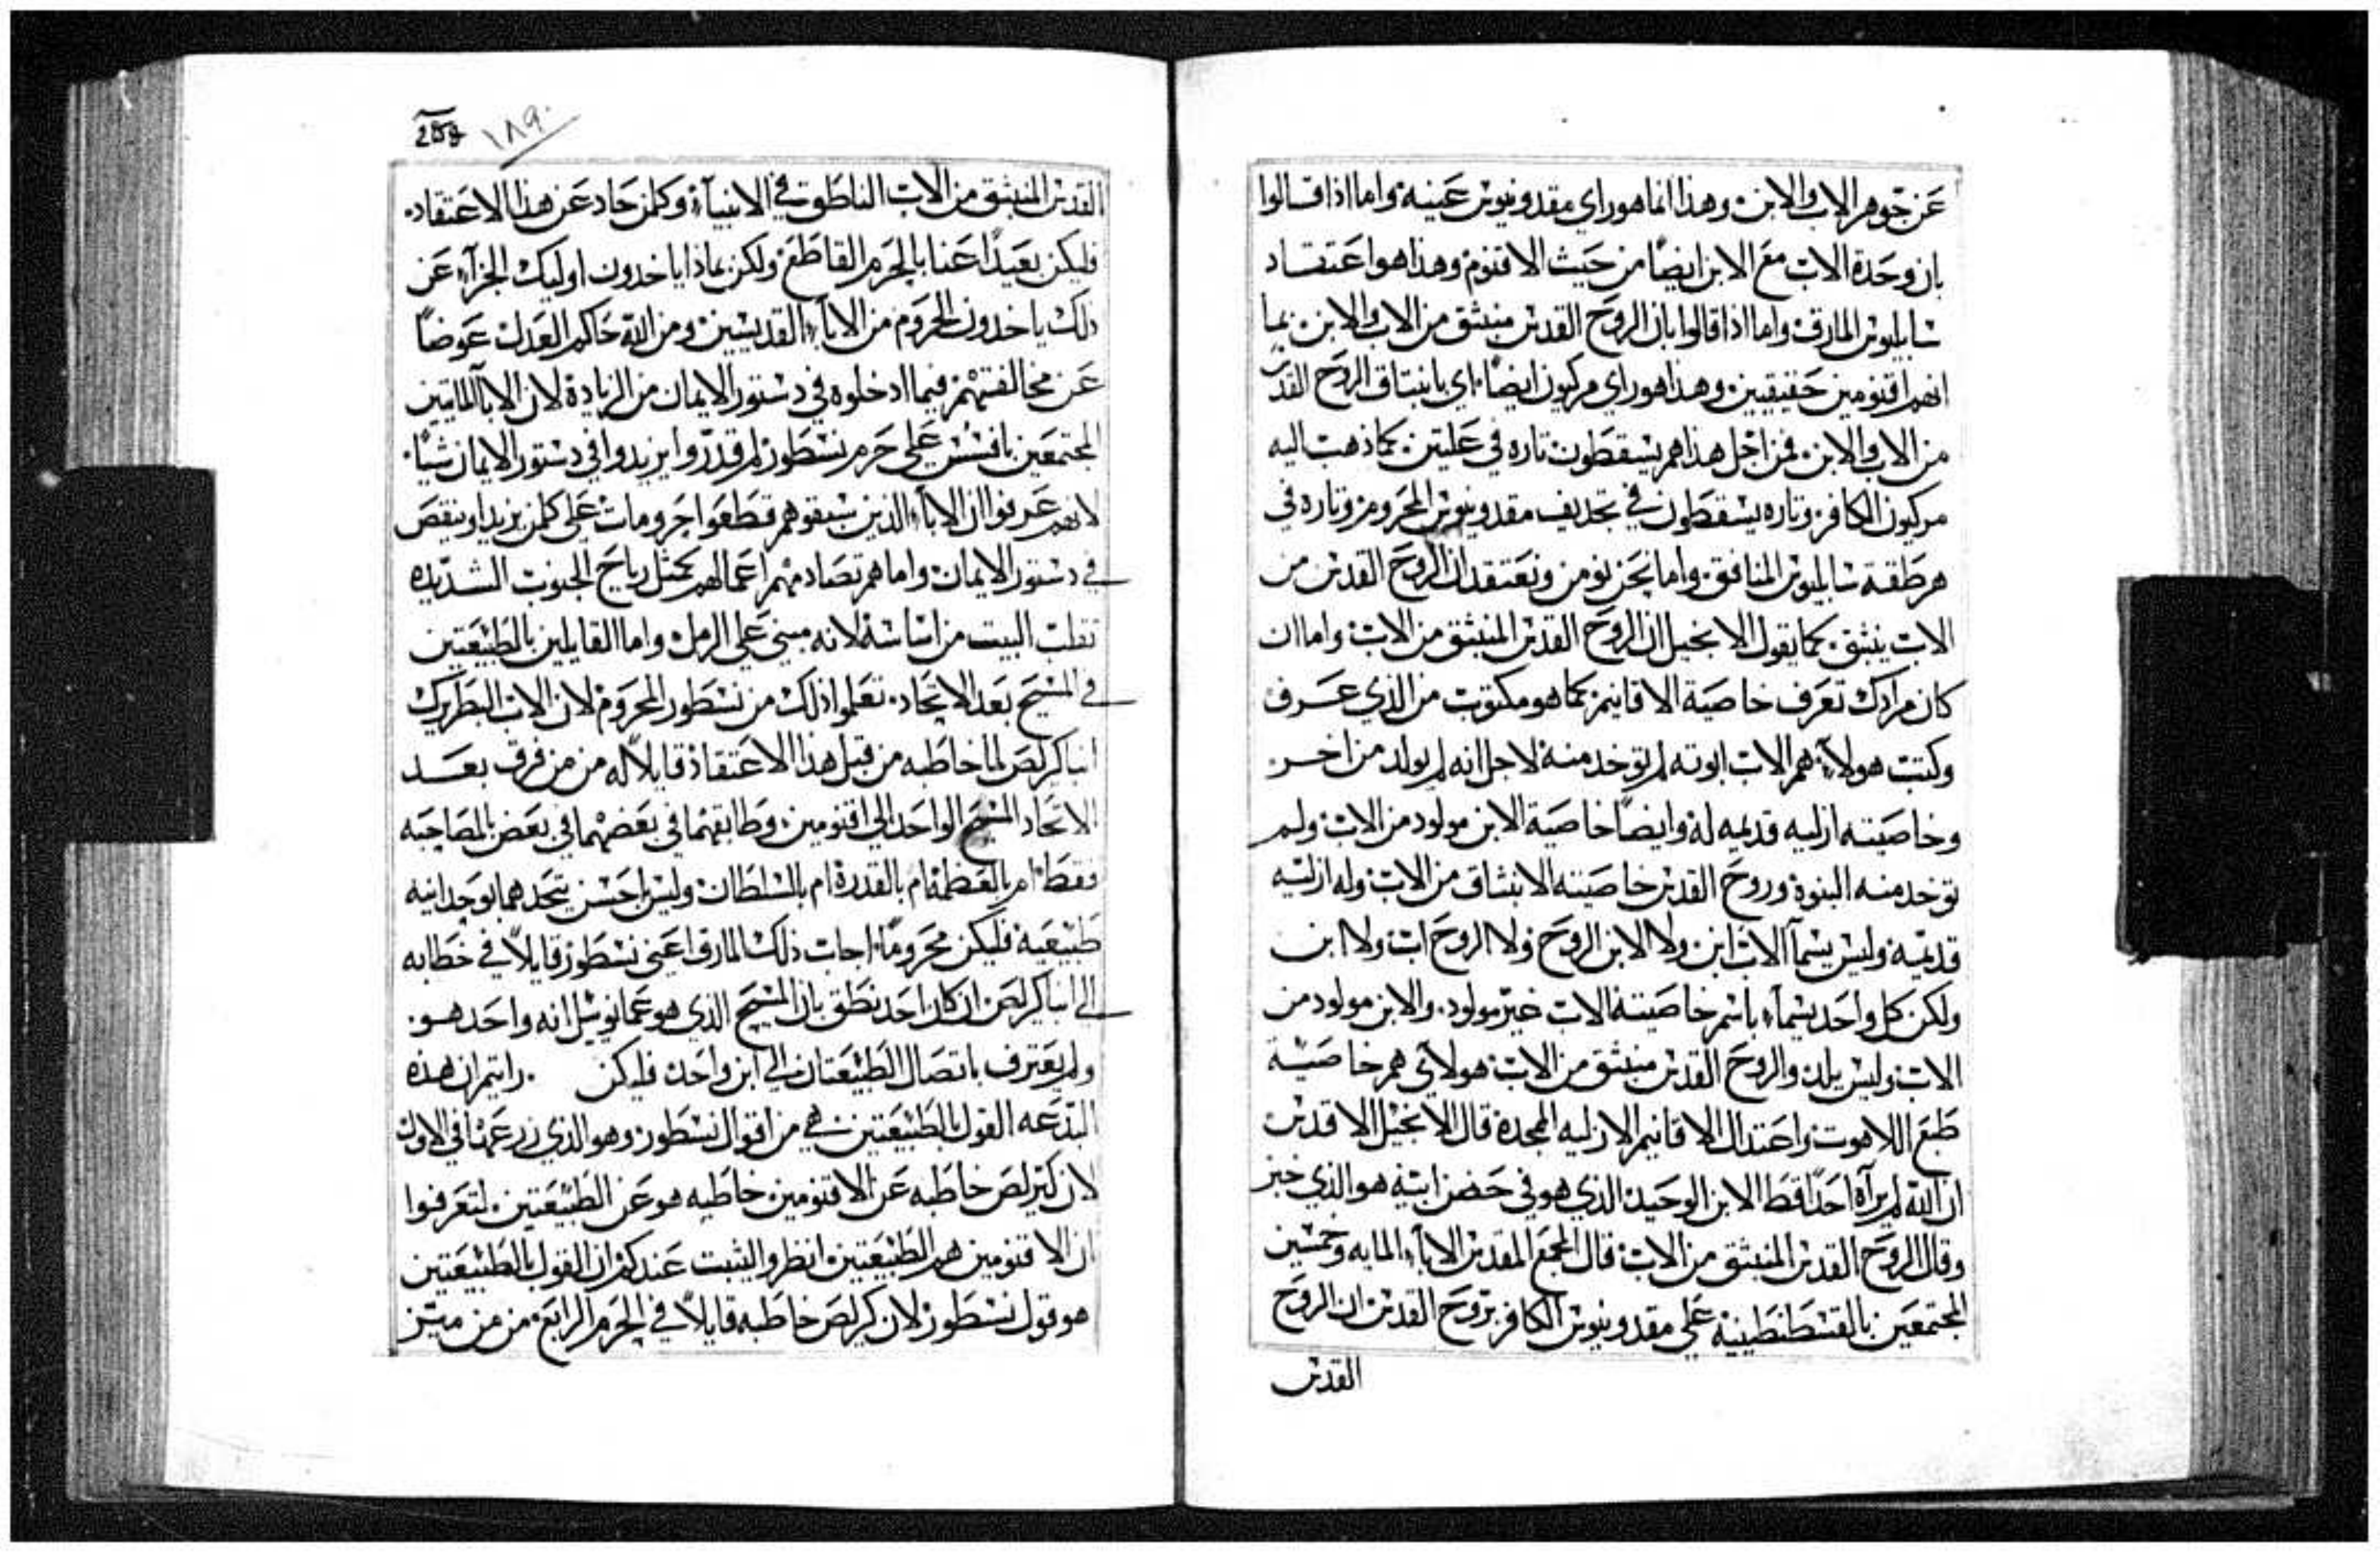 عن جوهر الاب والابن. وهذا انما هو راي مقدونيوس عينه. واما اذا قالوا
بان وحدة الاب مع الابن ايضًا من حيث الاقنوم وهذا هو اعتقاد
سابليوس المارق. واما اذا قالوا بان الروح القدس منبثق من الاب والابن بما
انهم اقنومين حقيقيين. وهذا هو راي مركيون ايضًا. اي بانبتاق الروح القدس
من الاب والابن. فمن اجل هذا هم يسقطون تاره في علتين. كما ذهب اليه
مركيون الكافر. وتاره يسقطون في تجديف مقدونيوس المحروم. وتاره في
هرطقة سابليوس المنافق. واما نحن نومن ونعتقد ان الروح القدس من
الاب ينبثق. كما يقول الانجيل ان الروح القدس المنبثق من الاب. واما ان
كان مرادك تعرف خاصية الاقانيم. كما هو مكتوب من الذي عرف
وكتب هولاء هم الاب ابوته لم توخد منه لاجل انه لم يولد من اخر
وخاصيته ازليه قديمه له. وايضًا خاصية الابن مولود من الاب. ولم
توخد منه البنوة. وروح القدس خاصيته الانبثاق من الاب. وله ازليه
قديمه. وليس يسمآ الاب ابن. ولا الابن الروح. ولا الروح اب. ولا ابن
ولكن كل واحد يسمآء باسم خاصيته الاب غير مولود. والابن مولود من
الاب. وليس يلد. والروح القدس منبثق من الاب. هولاي هم خاصية
طبع اللاهوت. واعتدال الاقانيم الازليه الممجدة. قال الانجيل الاقدس
ان الله لم يرآه احدًا قط الابن الوحيد الذي هو في حضن ابيه هو الذي خبر
وقال الروح القدس المنبثق من الاب. قال المجمع المقدس الابآء المايه وخمسين
المجتمعين بالقسطنطينيه علي مقدونيوس الكافر بروح القدس ان الروح
القدس
259 ١٨٩
القدس المنبثق من الاب الناطق في الانبيآء. وكلمن حاد عن هذا الاعتقاد.
فليكن بعيدًا عنا بالحرم القاطع. ولكن بماذا ياخدون اوليك الجزآء عن
ذلك ياخدون الحروم من الابآء القديسين. ومن الله حاكم العدل عوضًا
عن مخالفتهم فيما ادخلوه في دستور الايمان من الزيادة لان الابآ المايتين
المجتمعين بافسس علي حرم نسطور لم قدروا يزيدوا في دستور الايمان شيًا.
لانهم عرفوا ان الابآء الذين سبقوهم قطعوا حرومات علي كلمن يزيد او ينقص
في دستور الايمان. واما هم تصادمهم اعمالهم كمثل رياح الجنوب الشديده
تقلب البيت من اساسه لانه مبني علي الرمل. واما القايلين بالطبيعتين
في المسيح بعد الاتحاد. تعلموا ذلك من نسطور المحروم. لان الاب البطريرك
انبا كرلص لما خاطبه من قبل هذا الاعتقاد قايلاً له من من فرق بعد
الاتحاد المسيح الواحد الي اقنومين. وطابقهما في بعضهما في بعض بالمصاحبه
فقط. ام بالعظمة ام بالقدرة ام بالسلطان. وليس احسن يتحدهما بوحدانيه
طبيعيه فليكن محرومًا. اجاب ذلك المارق اعني نسطور قايلاً في خطابه
الي انبا كرلص. ان كان احد نطق بان المسيح الذي هو عمانوئيل انه واحد هو.
ولم يعترف باتصال الطبيعتان الي ابن واحد فليكن . رايتم ان هذه
البدعه القول بالطبيعتين هي من اقوال نسطور. وهو الذي زرعها في الاول
لان كيرلص خاطبه عن الاقنومين. خاطبه هو عن الطبيعتين. لتعرفوا
ان الاقنومين هم الطبيعتين. انظروا اليثبت عندكم ان القول بالطبيعتين
هو قول نسطور. لان كرلص خاطبه قايلاً في الحرم الرابع. من من ميّز